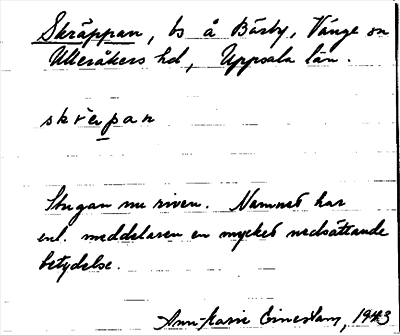 Skräppan, ts å Bärby, Vänge sn
Ulleråkers hd, Uppsala län.
skrɛpan
Stugan nu riven. Namnet har
enl. meddelaren en mycket nedsättande
betydelse.
Ann-Marie 1943